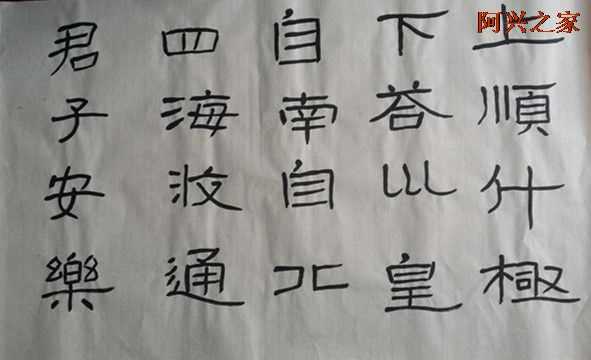 阿兴之家
上順斗極
下荅巛皇
自南自北
四海攸通
君子安樂